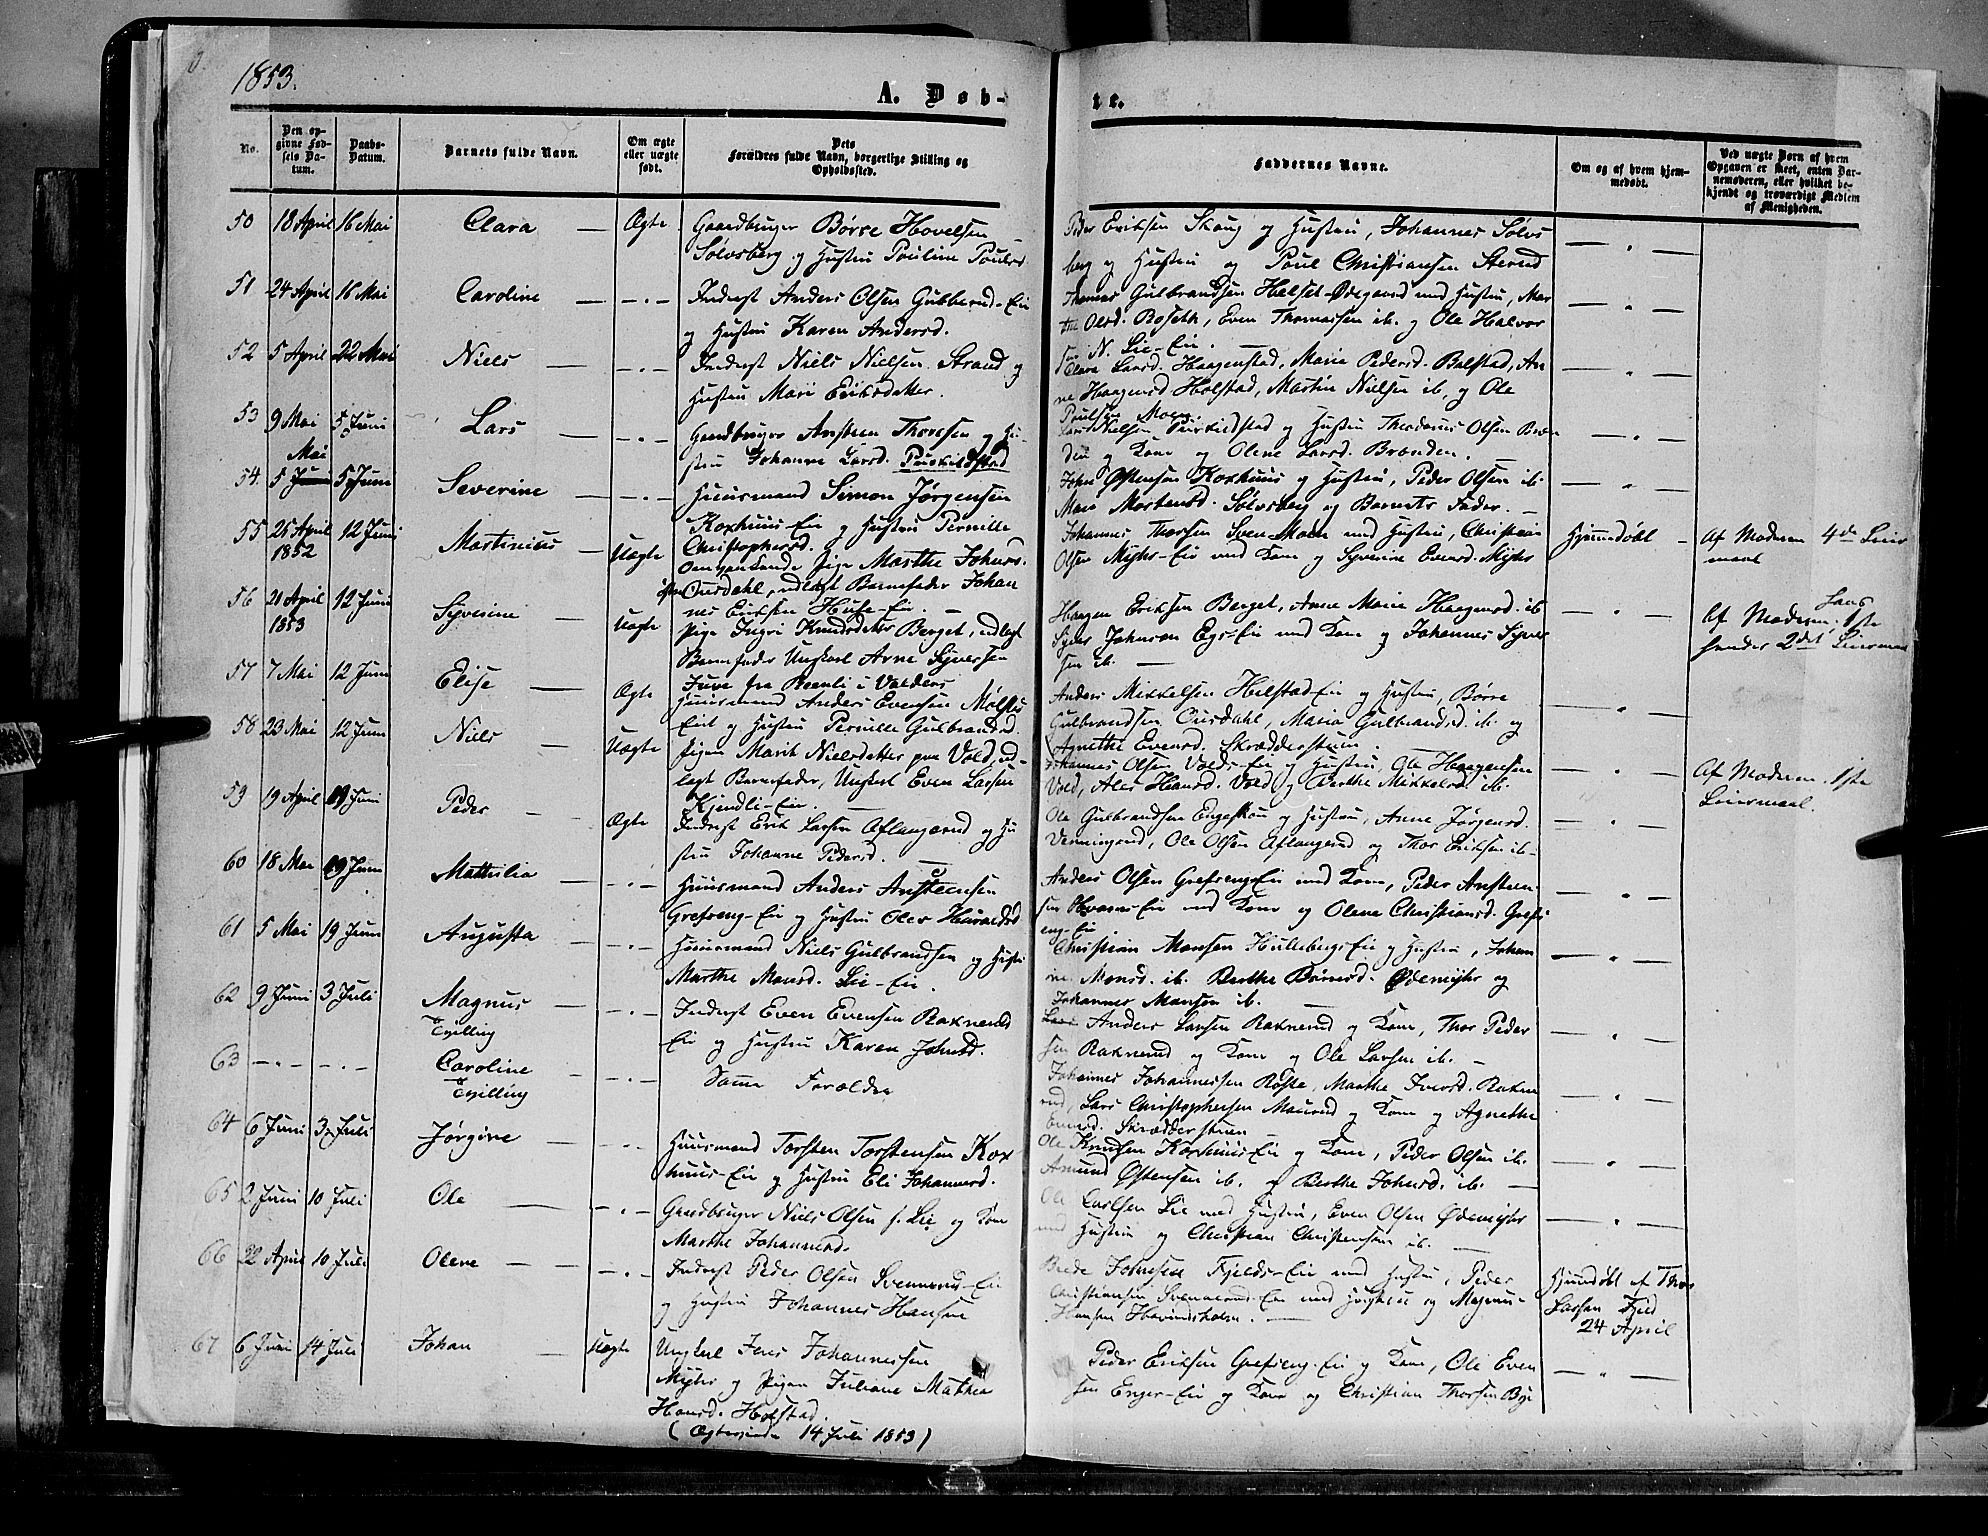 1853.
A. Døb-
te.
No.
Den op-
givne Fød-
sels Da-
tum.
Daabs-
Datum.
Barnets fulde Navn.
Om ægte
eller uægte
født.
Dets
Forældres fulde Navn, borgerlige Stilling og
Opholdssted.
Faddernes Navne.
Om og af hvem hjem-
medøbt.
Ved uægte Børn af hvem
Opgaven er skeet, enten Bar-
nemoderen, eller hvilket be-
kjendt og troværdigt Medlem
af Menigheden.
50 18 April 16 Mai Clara — Ægte Gaardbruger Børre Hovelsen
Sølvsberg og Hustru Pauline Paulsd
Peder Eriksen Skoug og Hustru, Johannes Sølvs
berg og Hustru og Poul Christiansen Sterud
51 24 April 16 Mai Caroline — Inderst Anders Olsen Gubberud-Eie
og Hustru Karen Andersd.
Thomas Gulbrandsen Helset-Ødegaard med Hustru, Mar
the Olsd. Boseth, Even Thomassen ib. og Ole Halvor
sen N. Lie-Eie.
52 5 April 22 Mai Niels — Inderst Niels Nielsen Strand og
Hustru Mari Eriksdatter.
Clara Larsd. Haagenstad, Marie Pedersd. Bolstad, An
ne Haagensd Holstad, Martin Nielsen ib. og Ole
Poulsen Moen.
53 9 Mai 5 Juni Lars — Gaardbruger Ansteen Thoresen og Hu-
stru Johanne Larsd. Puskildstad
Lars Nielsen Puskildstad og Hustru Theodorus Olsen Bræn
den og Kone og Olene Larsd. Brænden.
54 5 Juni Mai 5 Juni Severine — Huusmand Simon Jørgensen
Koxhuus-Eie og Hustru Pernille
Christophersd.
John Østensen Koxhuus og Hustru, Peder Olsen ib.
Mari Mortensd. Sølvsberg og Barnets Fader. —
55 25 April
1852 12 Juni Martinius — Uægte Omvankende Pige Marthe Johns.
Ousdahl, udlagt Barnefader Johan
nes Eriksen Huse-Eie. —
Johannes Thorsen Sven-Moen med Hustru, Christian
Olsen Myhr-Eie med Kone og Syverine Evensd. Myhr
Hjemdøbt — Af Moderen 4de Leier
maal
56 20 April
1853 12 Juni Syverine — Uægte Pige Ingri Knudsdatter Berget, udlagt
Barnefader Ungkarl Arne Syversen
Juve fra Reenli i Valders
Haagen Eriksen Berget, Anne Marie Haagensd. ib
Syver Johnson Egs-Eie med Kone og Johannes Syver
sen ib. —
Af Moderen. Hans 1ste
hendes 2det Leiermaal
57 7 Mai 12 Juni Elise — Ægte Huusmand Anders Evensen Mølstad
Eie og Hustru Pernille Gulbrandsd.
Anders Mikkelsen Helstad-Eie og Hustru, Børre
Gulbrandsen Ousdahl, Maria Gulbrandsd. ib. og
Agnethe Evensd. Skrædderstuen.
58 23 Mai 12 Juni Niels — Uægte Pigen Marit Nielsdatter paa Vold, ud-
lagt Barnefader, Ungkarl Even Larsen
Kjendli-Eie.
Johannes Olsen Volds-Eie og Hustru, Ole Haagensen
Vold, Ales Hansd. Vold og Berthe Mikkelsd. ib.
Af Moderen. 1ste
Leiermaal.
59 19 April 19 Juni Peder — Ægte Inderst Erik Larsen Aflangerud og Hu
stru Johanne Pedersd.
Ole Gulbrandsen Engeskou og Hustru, Anne Jørgensd.
Venningrud, Ole Olsen Aflangerud og Thor Eriksen ib.
60 18 Mai 19 Juni Mathilia — Huusmand Anders Ansteensen
Grefseng-Eie og Hustru Oles Haraldsd
Anders Olsen Grefseng-Eie med Kone, Peder Ansteen-
sen Hvams-Eie med Kone og Olene Christiansd. Grefs
eng-Eie
61 5 Mai 19 Juni Augusta — Huusmand Niels Gulbrandsen og Hustru
Marthe Monsd. Lie-Eie.
Christian Monsen Hullebergs-Eie og Hustru, Johan
ne Monsd. ib. Berthe Børresd. Ødemyhr og
Johannes Monsen ib. —
62 9 Juni 3 Juli Magnus
Tvilling — Inderst Even Evensen Raknerud
Eie og Hustru Karen Johnsd.
Lars Anders Larsen Raknerud og Kone, Thor Peder
sen Raknerud og Kone og Ole Larsen ib. —
63 Caroline
Tvilling — Samme Forældre
Johannes Johannessen Røste, Marthe Iversd. Rakne
rud, Lars Christophersen Maurud og Kone og Agnethe
Evensd. Skrædderstuen
64 6 Juni 3 Juli Jørgine — Huusmand Torsten Torstensen Kox
huus-Eie og Hustru Eli Johannesd.
Ole Knudsen Koxhuus-Eie og Kone, Peder Olsen ib.
Amund Østensen ib. og Berthe Johnsd. ib. —
65 2 Juni 10 Juli Ole — Gaardbruger Niels Olsen s. Lie og Kone
Marthe Johannesd.
Ole Carlsen Lie med Hustru, Even Olsen Ødemyhr
med Hustru og Christian Christensen ib. —
66 22 April 10 Juli Olene — Inderst Peder Olsen Svennerud-Eie
og Hustru Johannes Hansen
Brede Johnesen Fjelds-Eie med Hustru, Peder
Christiansen Svennerud-Eie med Hustru og Magnus
Hansen Hovindsholm. —
Hjemdøbt af Thor
Larsen Fjeld
24 April
67 6 Juni 14 Juli Johan — Uægte Ungkarl Jens Johannessen
Myhr og Pigen Juliane Mathea
Hansd. Holstad.
(Ægteviede 14 Juli 1853)
Peder Eriksen Grefseng-Eie og Kone, Ole Even
sen Enger-Eie og Kone og Christian Thorsen Bye